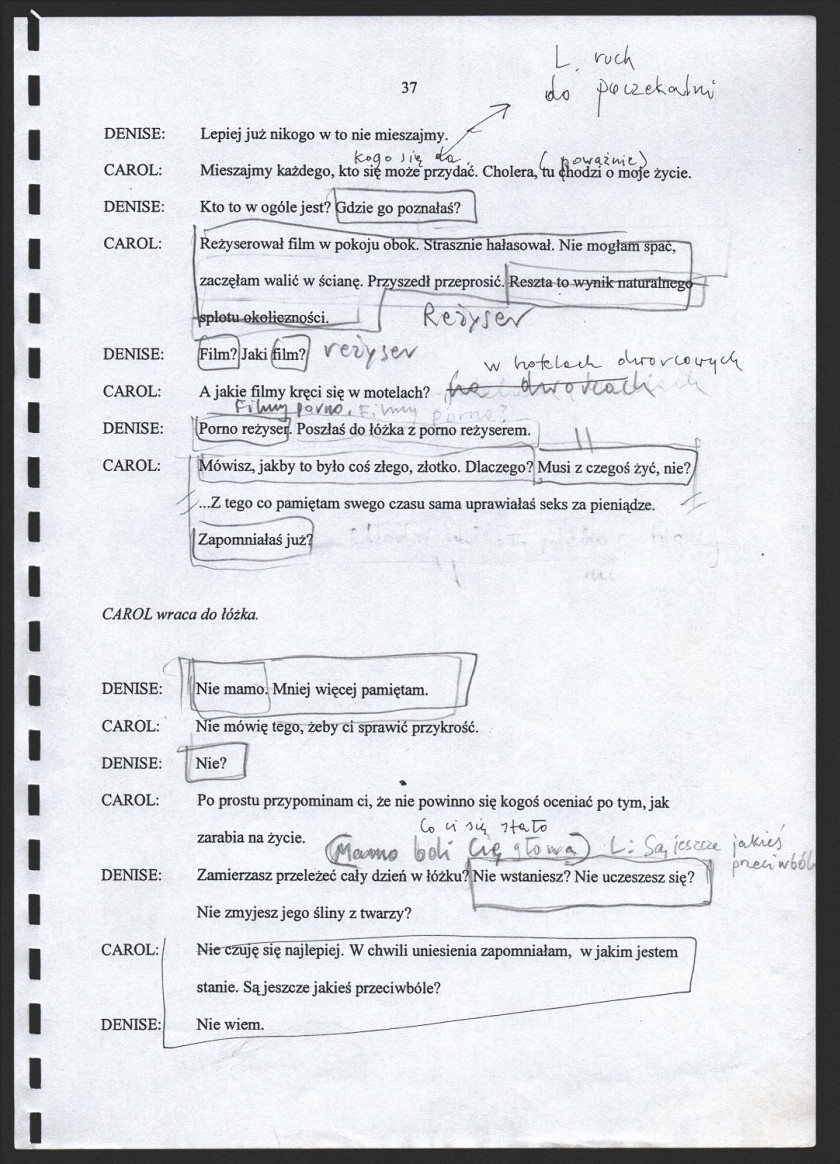 L. ruch
do poczekalni
37
DENISE: Lepiej już nikogo w to nie mieszajmy.
kogo się da (poważnie)
CAROL: Mieszajmy każdego, kto się może przydać. Cholera, tu chodzi o moje życie.
DENISE: Kto to w ogóle jest? Gdzie go poznałaś?
CAROL: Reżyserował film w pokoju obok. Strasznie hałasował. Nie mogłam spać,
zaczęłam walić w ścianę. Przyszedł przeprosić. Reszta to wynik naturalnego
splotu okoliczności.
Reżyser
DENISE: Film? Jaki film? reżyser
w hotelach dworcowych
CAROL: A jakie filmy kręci się w motelach? na dworcach
Filmy porno. Filmy porno?
DENISE: Porno reżyser. Poszłaś do łóżka z porno reżyserem.
CAROL: Mówisz, jakby to było coś złego, złotko. Dlaczego? Musi z czegoś żyć, nie?
...Z tego co pamiętam swego czasu sama uprawiałaś seks za pieniądze.
Zapomniałaś już?
CAROL wraca do łóżka.
DENISE: Nie mamo. Mniej więcej pamiętam.
CAROL: Nie mówię tego, żeby ci sprawić przykrość.
DENISE: Nie?
CAROL: Po prostu przypominam ci, że nie powinno się kogoś oceniać po tym, jak
zarabia na życie.
Co ci się stało
(Mamo boli Cię głowa) L: Są jeszcze jakieś
przeciwból
DENISE: Zamierzasz przeleżeć cały dzień w łóżku? Nie wstaniesz? Nie uczeszesz się?
Nie zmyjesz jego śliny z twarzy?
CAROL: Nie czuję się najlepiej. W chwili uniesienia zapomniałam, w jakim jestem
stanie. Są jeszcze jakieś przeciwbóle?
DENISE: Nie wiem.